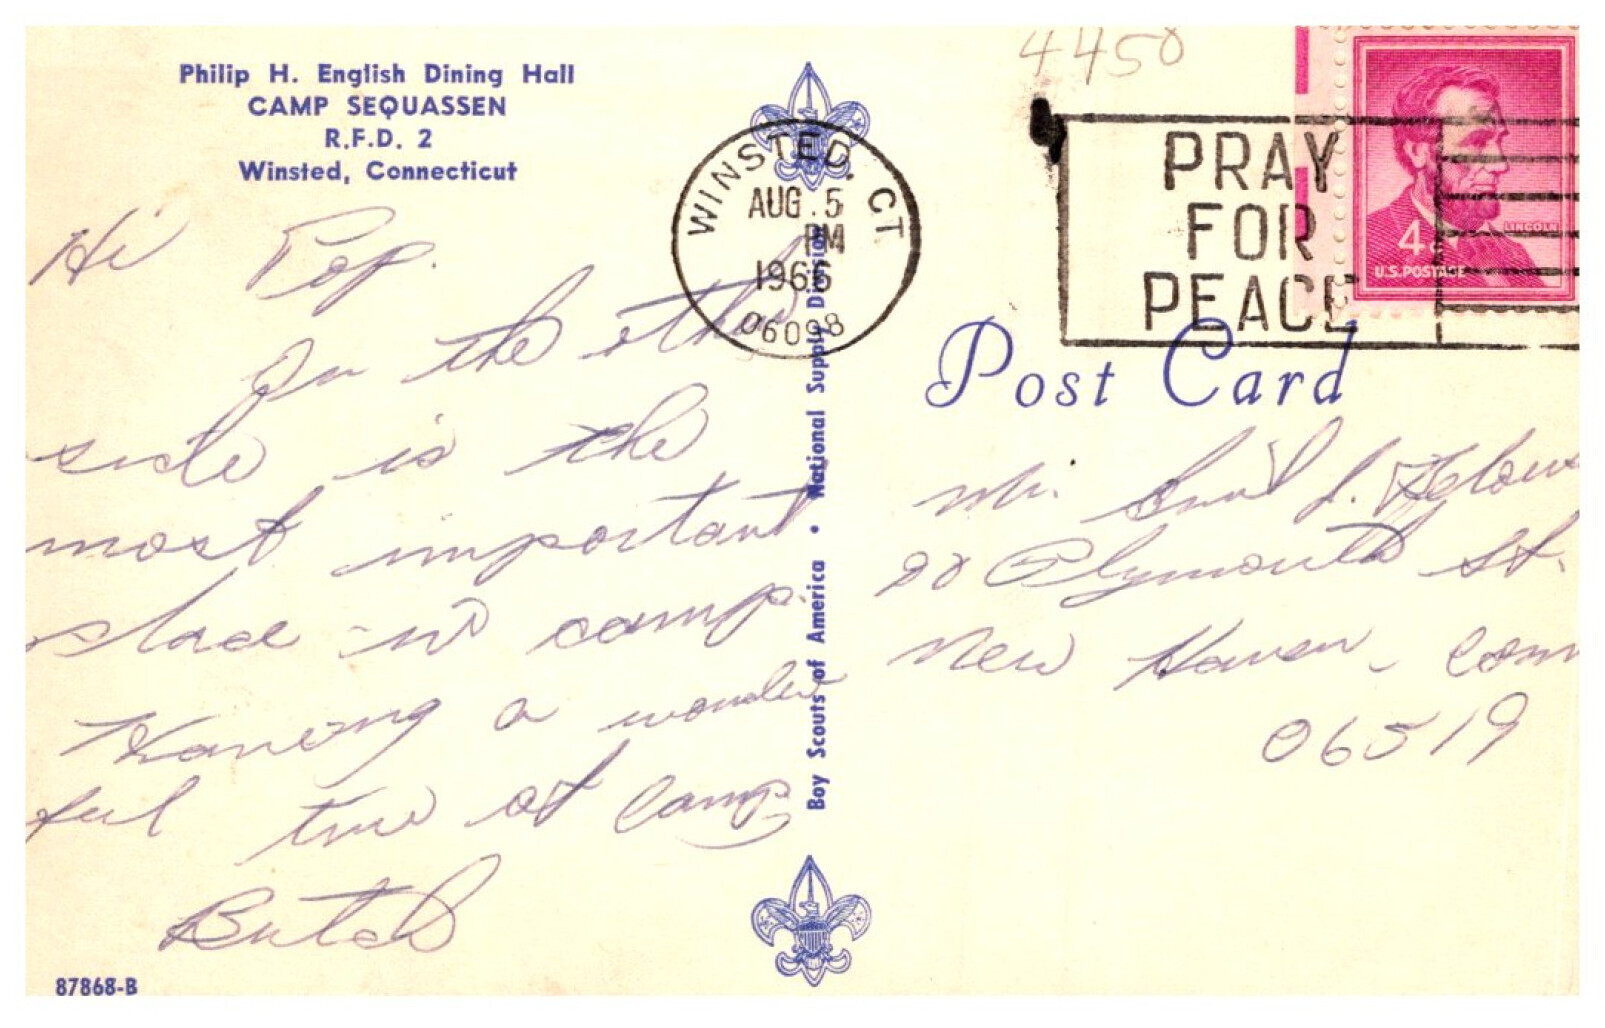 4450
Philip H. English Dining Hall
CAMP SEQUASSEN
R.F.D. 2
Winsted, Connecticut
WINSTED, CT
AUG 5
PM
1966
06098
PRAY
FOR
PEACE
LINCOLN
4¢
U.S. POSTAGE
Post Card
Hi Pop.
On the other
side is the
most important
place in camp.
Having a wonder
ful time at Camp
Butch
Boy Scouts of America • National Supply Division
Mr. J.
20 Plymouth St.
New Haven, Conn
06519
87868-B